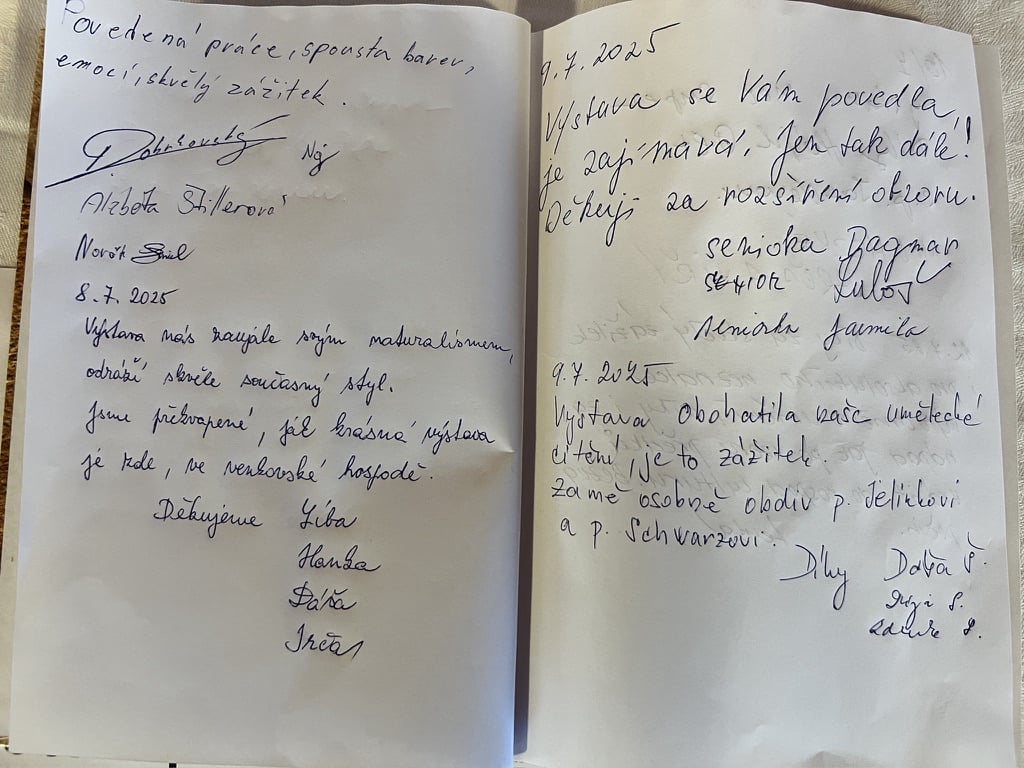 Povedená práce, spousta barev,
emocí, skvělý zážitek.
Alžběta Stillerová
Novák
8.7.2025
Výstava nás zaujala svým naturalismem,
odráží skvěle současný styl.
Jsme překvapené, jak krásná výstava
je zde, ve venkovské hospodě.
Děkujeme Líba
Hanka
Dáša
Irča
9.7.2025
Výstava se Vám povedla,
je zajímavá. Jen tak dál!
Děkuji za rozšíření obzoru.
seniorka Dagmar
senior Luboš
seniorka Jarmila
9.7.2025
Výstava obohatila naše umělecké
cítění, je to zážitek.
Za mě osobně obdiv p. Jelínkovi
a p. Schwarzovi.
Díky Dáša Š.
S.